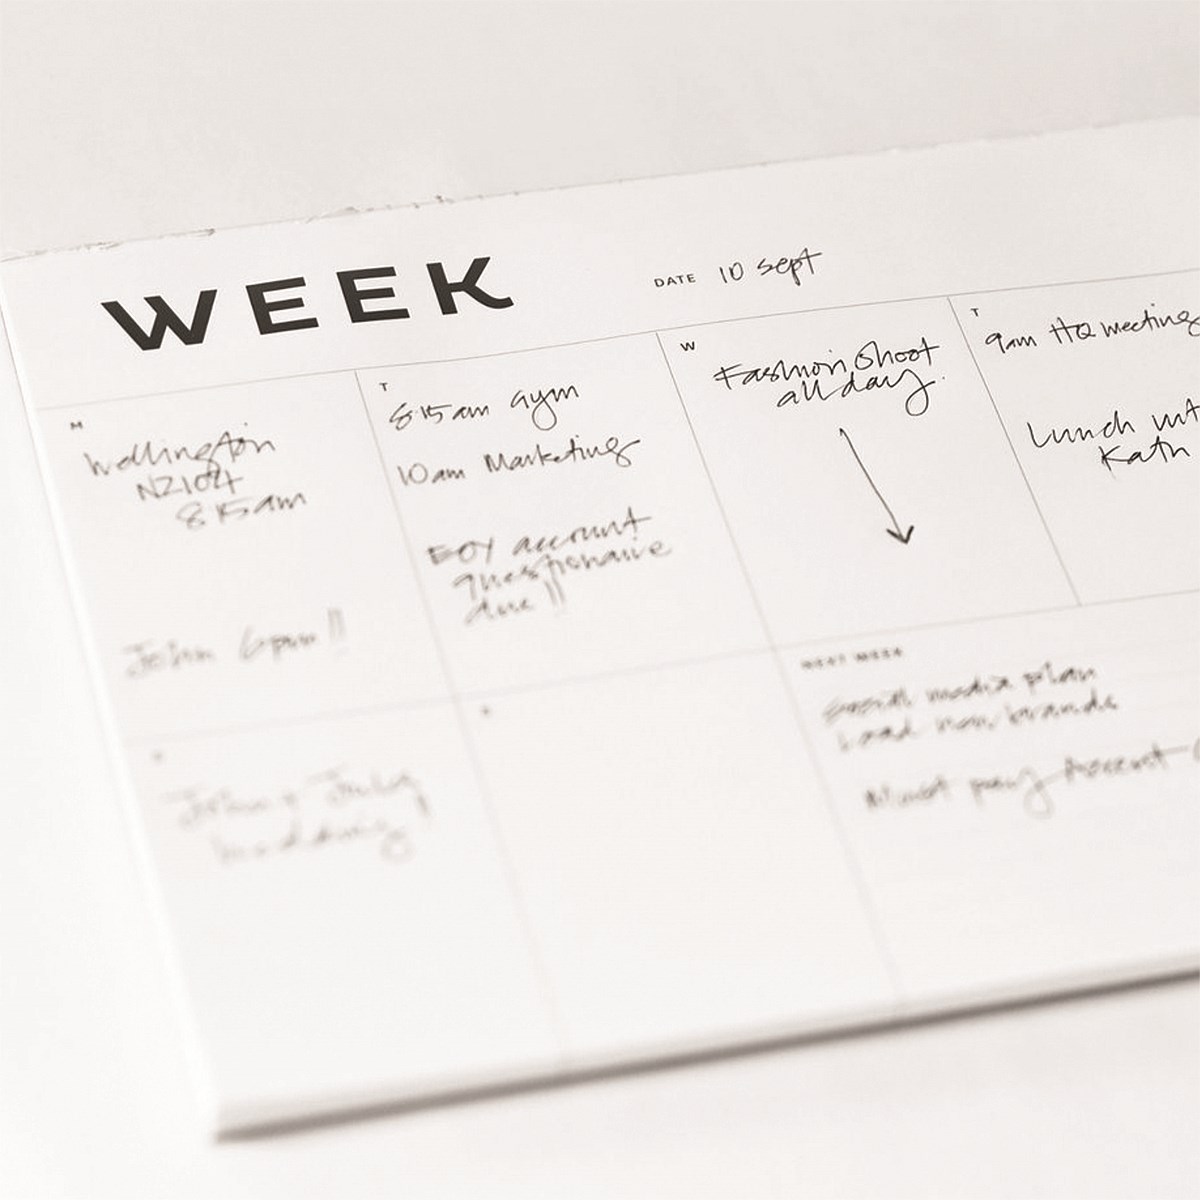 WEEK
DATE 10 Sept
M
Wellington
NZ104
8.15am
John 6pm!!
T
8.15am Gym
10am Marketing
EOY account
questionaire
due!!
W
Fashion Shoot
all day.
T
9am HQ meeting
Lunch wit
Kath
John + July
wedding
NEXT WEEK
Social media plan
Load new brands
Must pay Accent